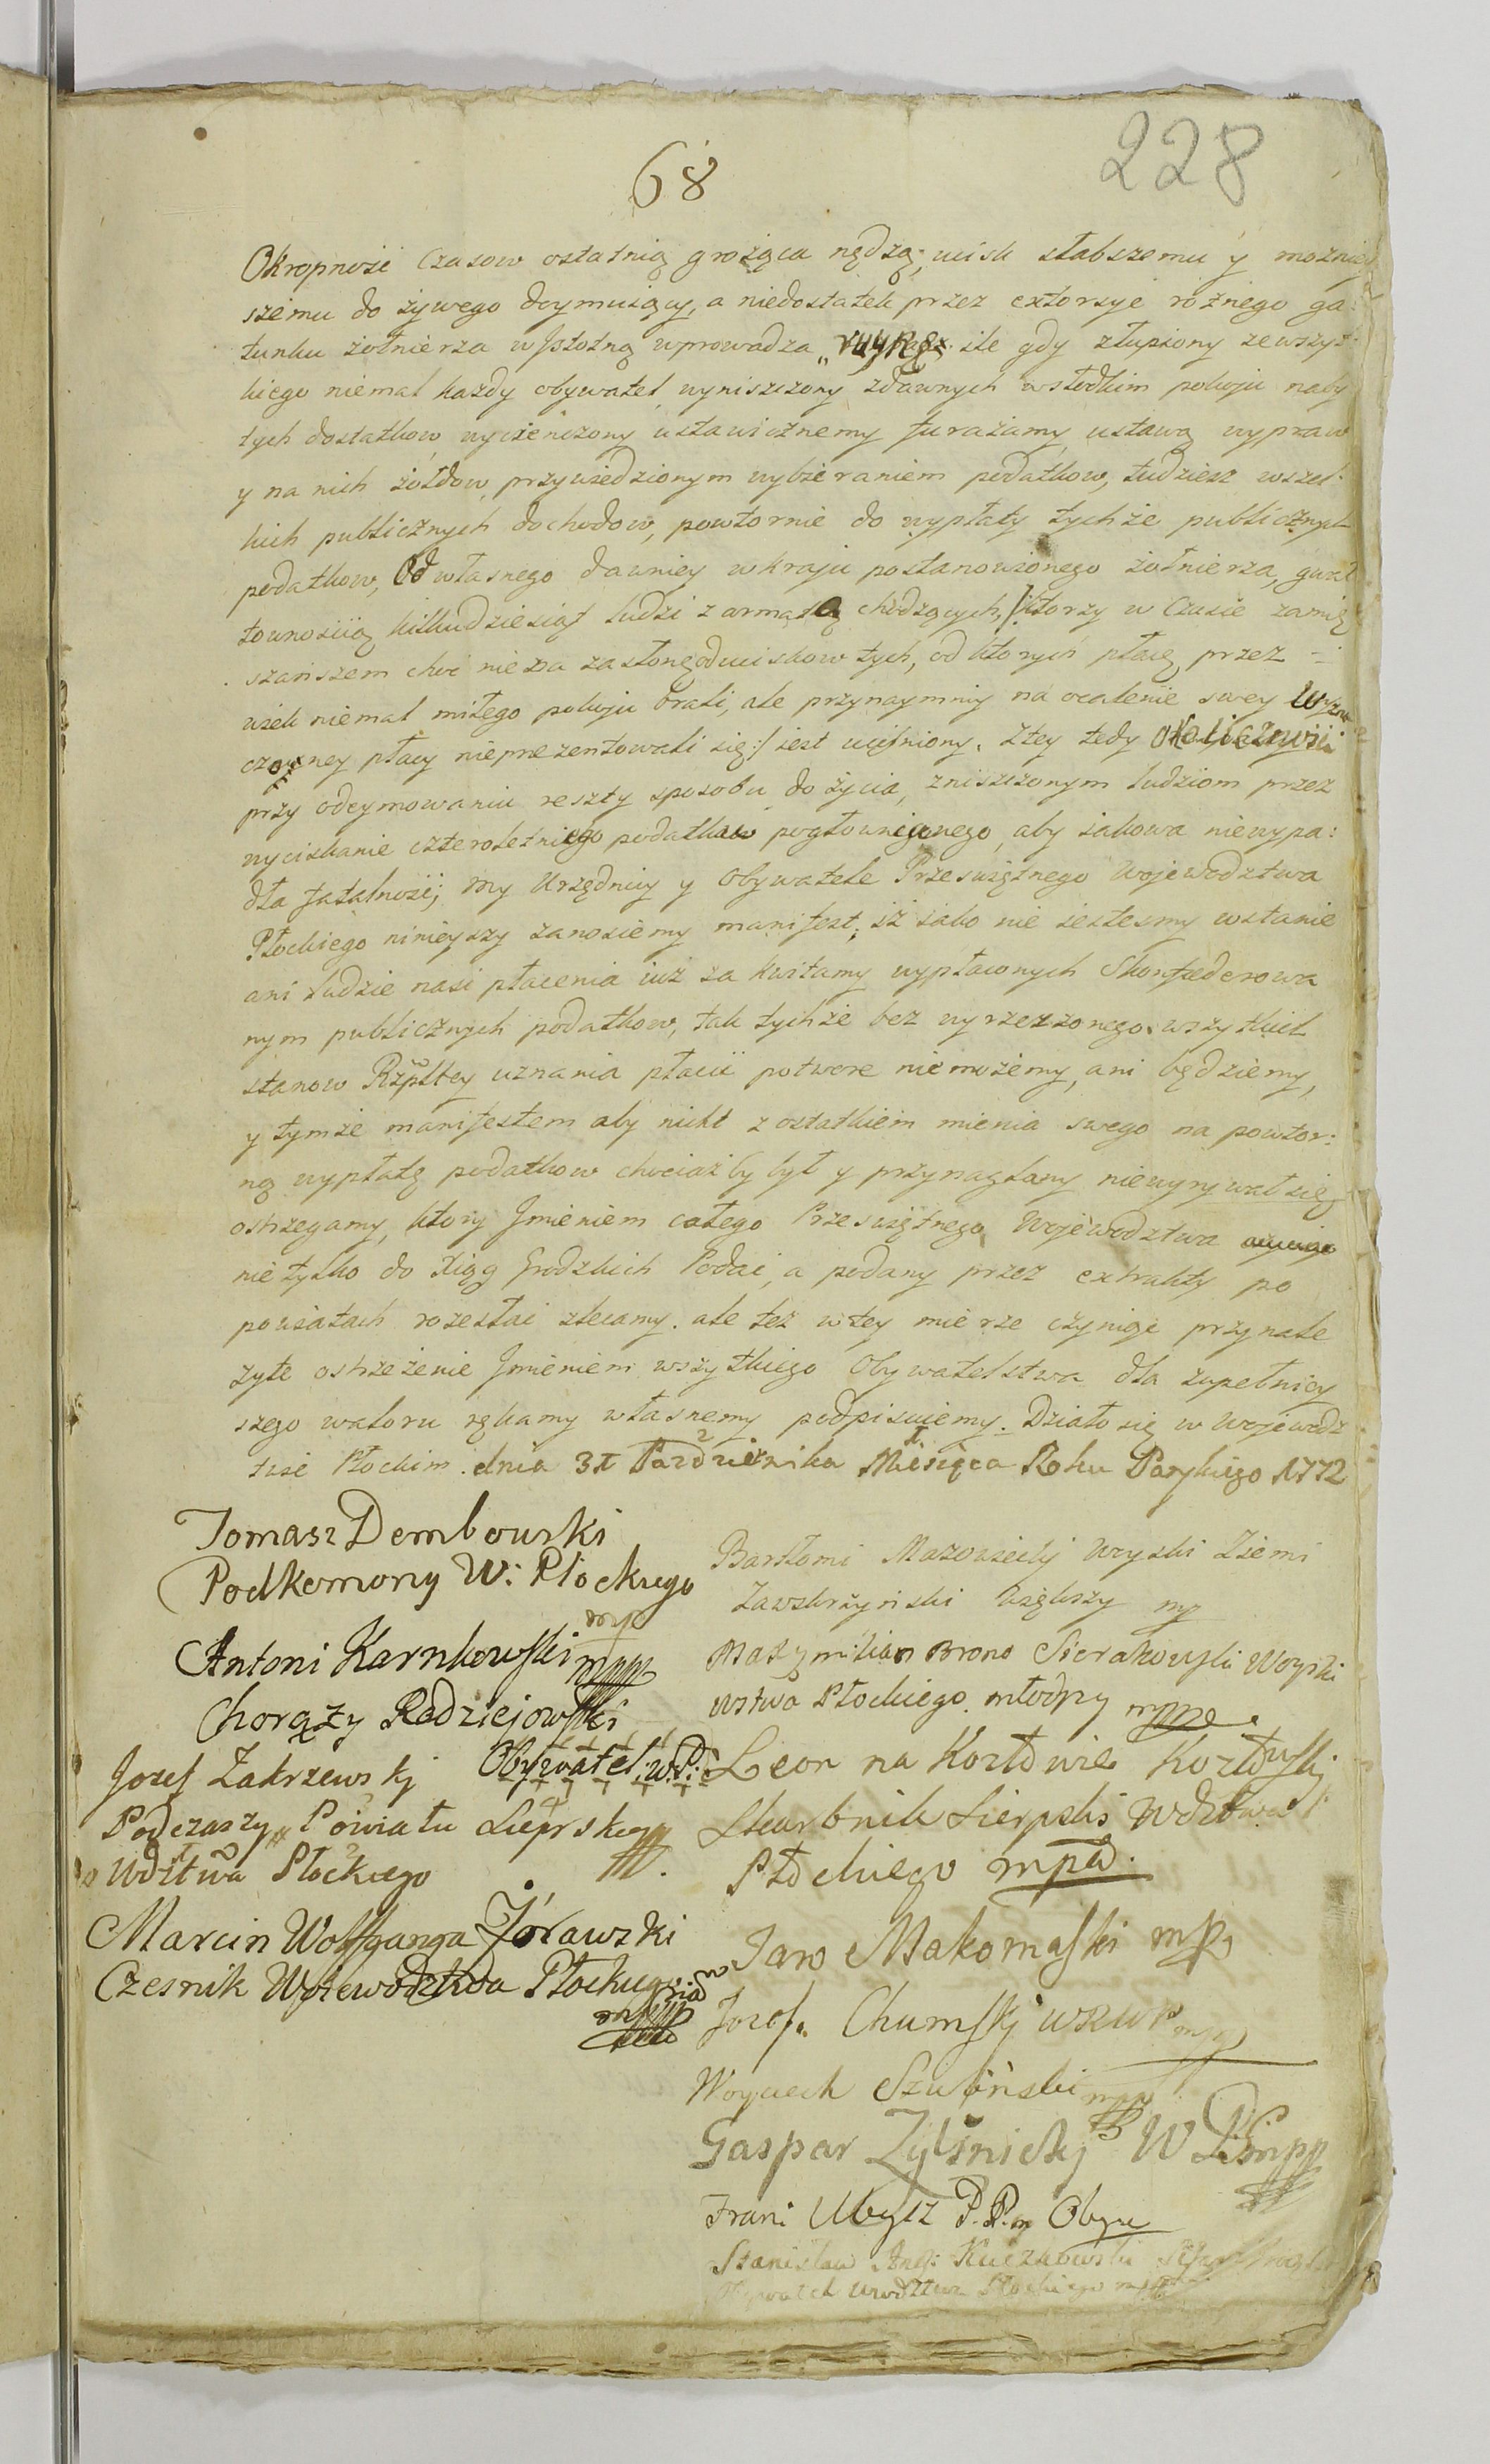 228
68
Okropność czasow ostatnią grożąca nędzą, ucisk słabszemu y możniey
szemu do żywego doymuiący, a niedostatek przez extorsye rożnego ga:
tunku żołnierza w Jstotną wprowadza ile gdy złupiony zewszys:
kiego niemal każdy obywatel, wyniszczony zdawnych w słodkim pokoju naby
tych dostatkow, wycieńczony ustawicznemy furażamy, ustawą wypraw
y na nich żołdow, przywiedzionym wybieraniem podatkow, tudziesz wszel:
kich publicznych dochodow, powtornie do wypłaty tychże publicznych
podatkow, Od własnego dawniey w kraju postanowionego żołnierza, gwał
townością kilkudziesiąt ludzi z armatą chodzących, /:ktorzy w Czasie zamię
szanszem choć nie na zasłonę od uciskow tych, od ktorych płacę, przez
wiek niemal miłego pokoju brali, ale przynaymniy na ocalenie swey Wyzna
czoney płacy nieprezentowali się:/ iest uciśniony. Ztey tedy Okoliczności
przy odeymowaniu reszty sposobu do życia, zniszczonym ludziom przez
wyciskanie czteroletniego podatku pogłownego, aby iakowa niewypa:
dła fatalność; my Urzędnicy y Obywatele Przeświętnego Województwa
Płockiego ninieyszy zanosiemy manifest, iż iako nie iestesmy wstanie
ani ludzie nasi płacenia iuż za kwitamy wypłaconych Skonfederowa
nym publicznych podatkow, tak tychże bez wyrzezzonego wszytkich
stanow Rzpltey uznania płacić potwore nie możemy, ani będziemy,
y tymże manifestem aby nikt z ostatkiem mienia swego na powtor:
ną wypłatę podatkow chociażby był y przynaglany niewyrywał się
ostrzegamy, ktory Jmieniem całego Przeświętnego Województwa
nie tylko do Xiąg Grodzkich Podać, a podany przez extrakty po
powiatach rozesłać zlecamy. ale też w tey mierze czyniąc przynale
żyte ostrzeżenie Jmieniem wszytkiego Obywatelstwa dla zupełniey
szego waloru rękamy własnemy podpisuiemy. Działo się w Wojewodz
twie Płockim. dnia 31 Pazdziernika Miesiąca Roku Pańskiego 1772
Tomasz Dembowski
Podkomorzy W: Płockiego
mp
Antoni Karnkowski mppp
Chorąży Radziejowski
Obywatel W:P:
Jozef Zakrzewskj
Podczaszy Powiatu Sieprskiego
Wdztwa Płockiego
Marcin Wolfganga Żórawski
Czesnik Wojewodztwa Płockiego
Bartłomi Mazowiecky Woyski Ziemi
Zawskrzyński Większy mp
Maxymilian Brono Sierakowski Woyski
wstwa Płockiego młodszy mppp
Leon na Kozłowie Kozłowskj
Skarbnik Sierpski Wdztwa
Płockiego mpd.
Jan Makomaski mpp
Jozef Chumskj WZWP mpp
Woyciech Szubiński mpp
Gaspar
Frani Ubysz P. P. Obyw
Stanisław Aug: Kuczkowski
Obywatel Wwdztwa Płockiego mpp